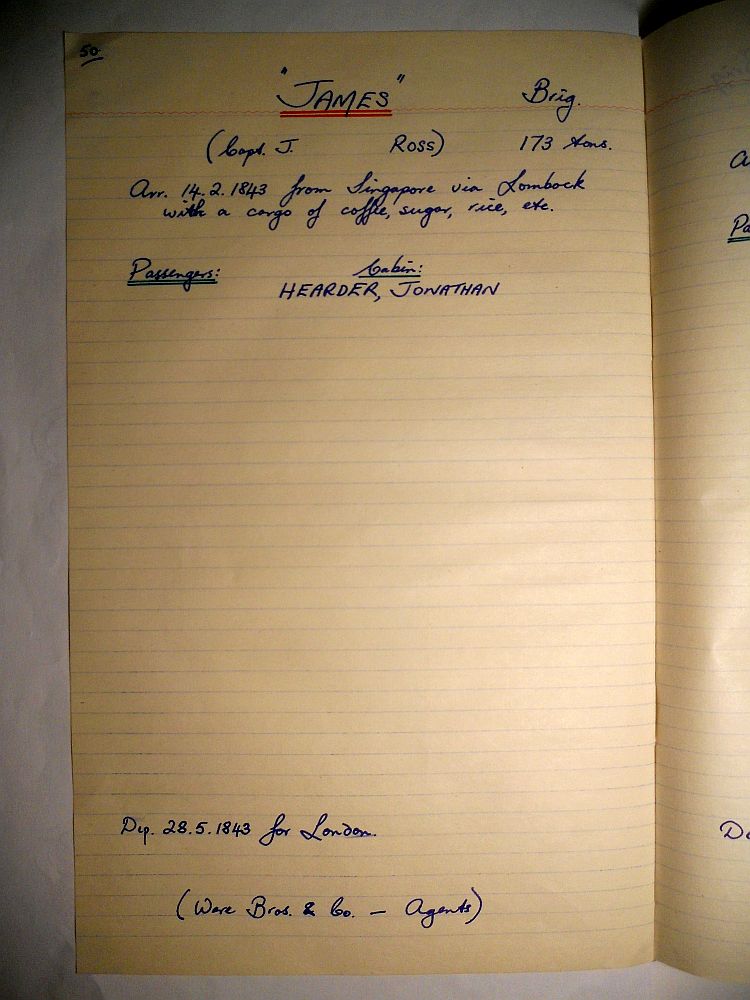 50
"JAMES" Brig.
(Capt. J. Ross) 173 tons.
Arr. 14.2.1843 from Singapore via Lombock
with a cargo of coffee, sugar, rice, etc.
Passengers: Cabin:
HEARDER, JONATHAN
Pa
Dep. 28.5.1843 for London.
De
(Ware Bros. & Co. — Agents)